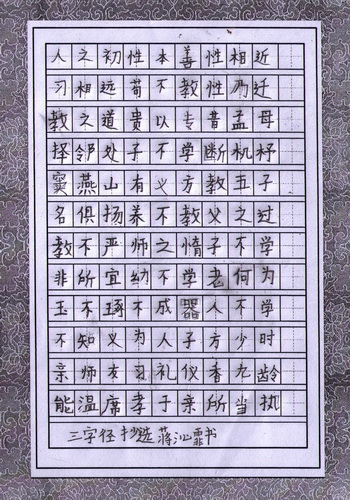 人之初性本善性相近
习相远苟不教性乃迁
教之道贵以专昔孟母
择邻处子不学断机杼
窦燕山有义方教五子
名俱扬养不教父之过
教不严师之惰子不学
非所宜幼不学老何为
玉不琢不成器人不学
不知义为人子方少时
亲师友习礼仪香九龄
能温席孝于亲所当执
三字径抄选蒋沁霏书